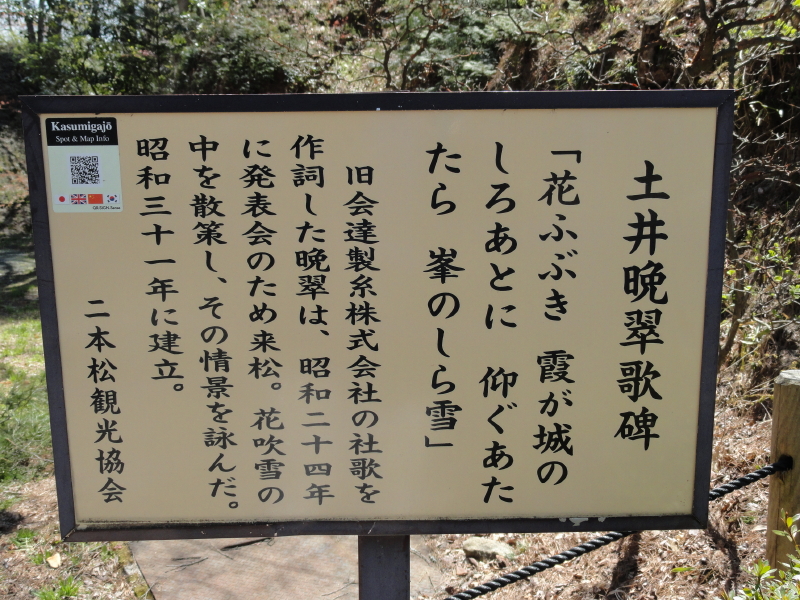 土井晩翠歌碑
「花ふぶき 霞が城の
しろあとに 仰ぐあた
たら 峯のしら雪」
旧会達製糸株式会社の社歌を
作詞した晩翠は、昭和二十四年
に発表会のため来松。花吹雪の
中を散策し、その情景を詠んだ。
昭和三十一年に建立。
二本松観光協会
Kasumigajō
Spot & Map Info